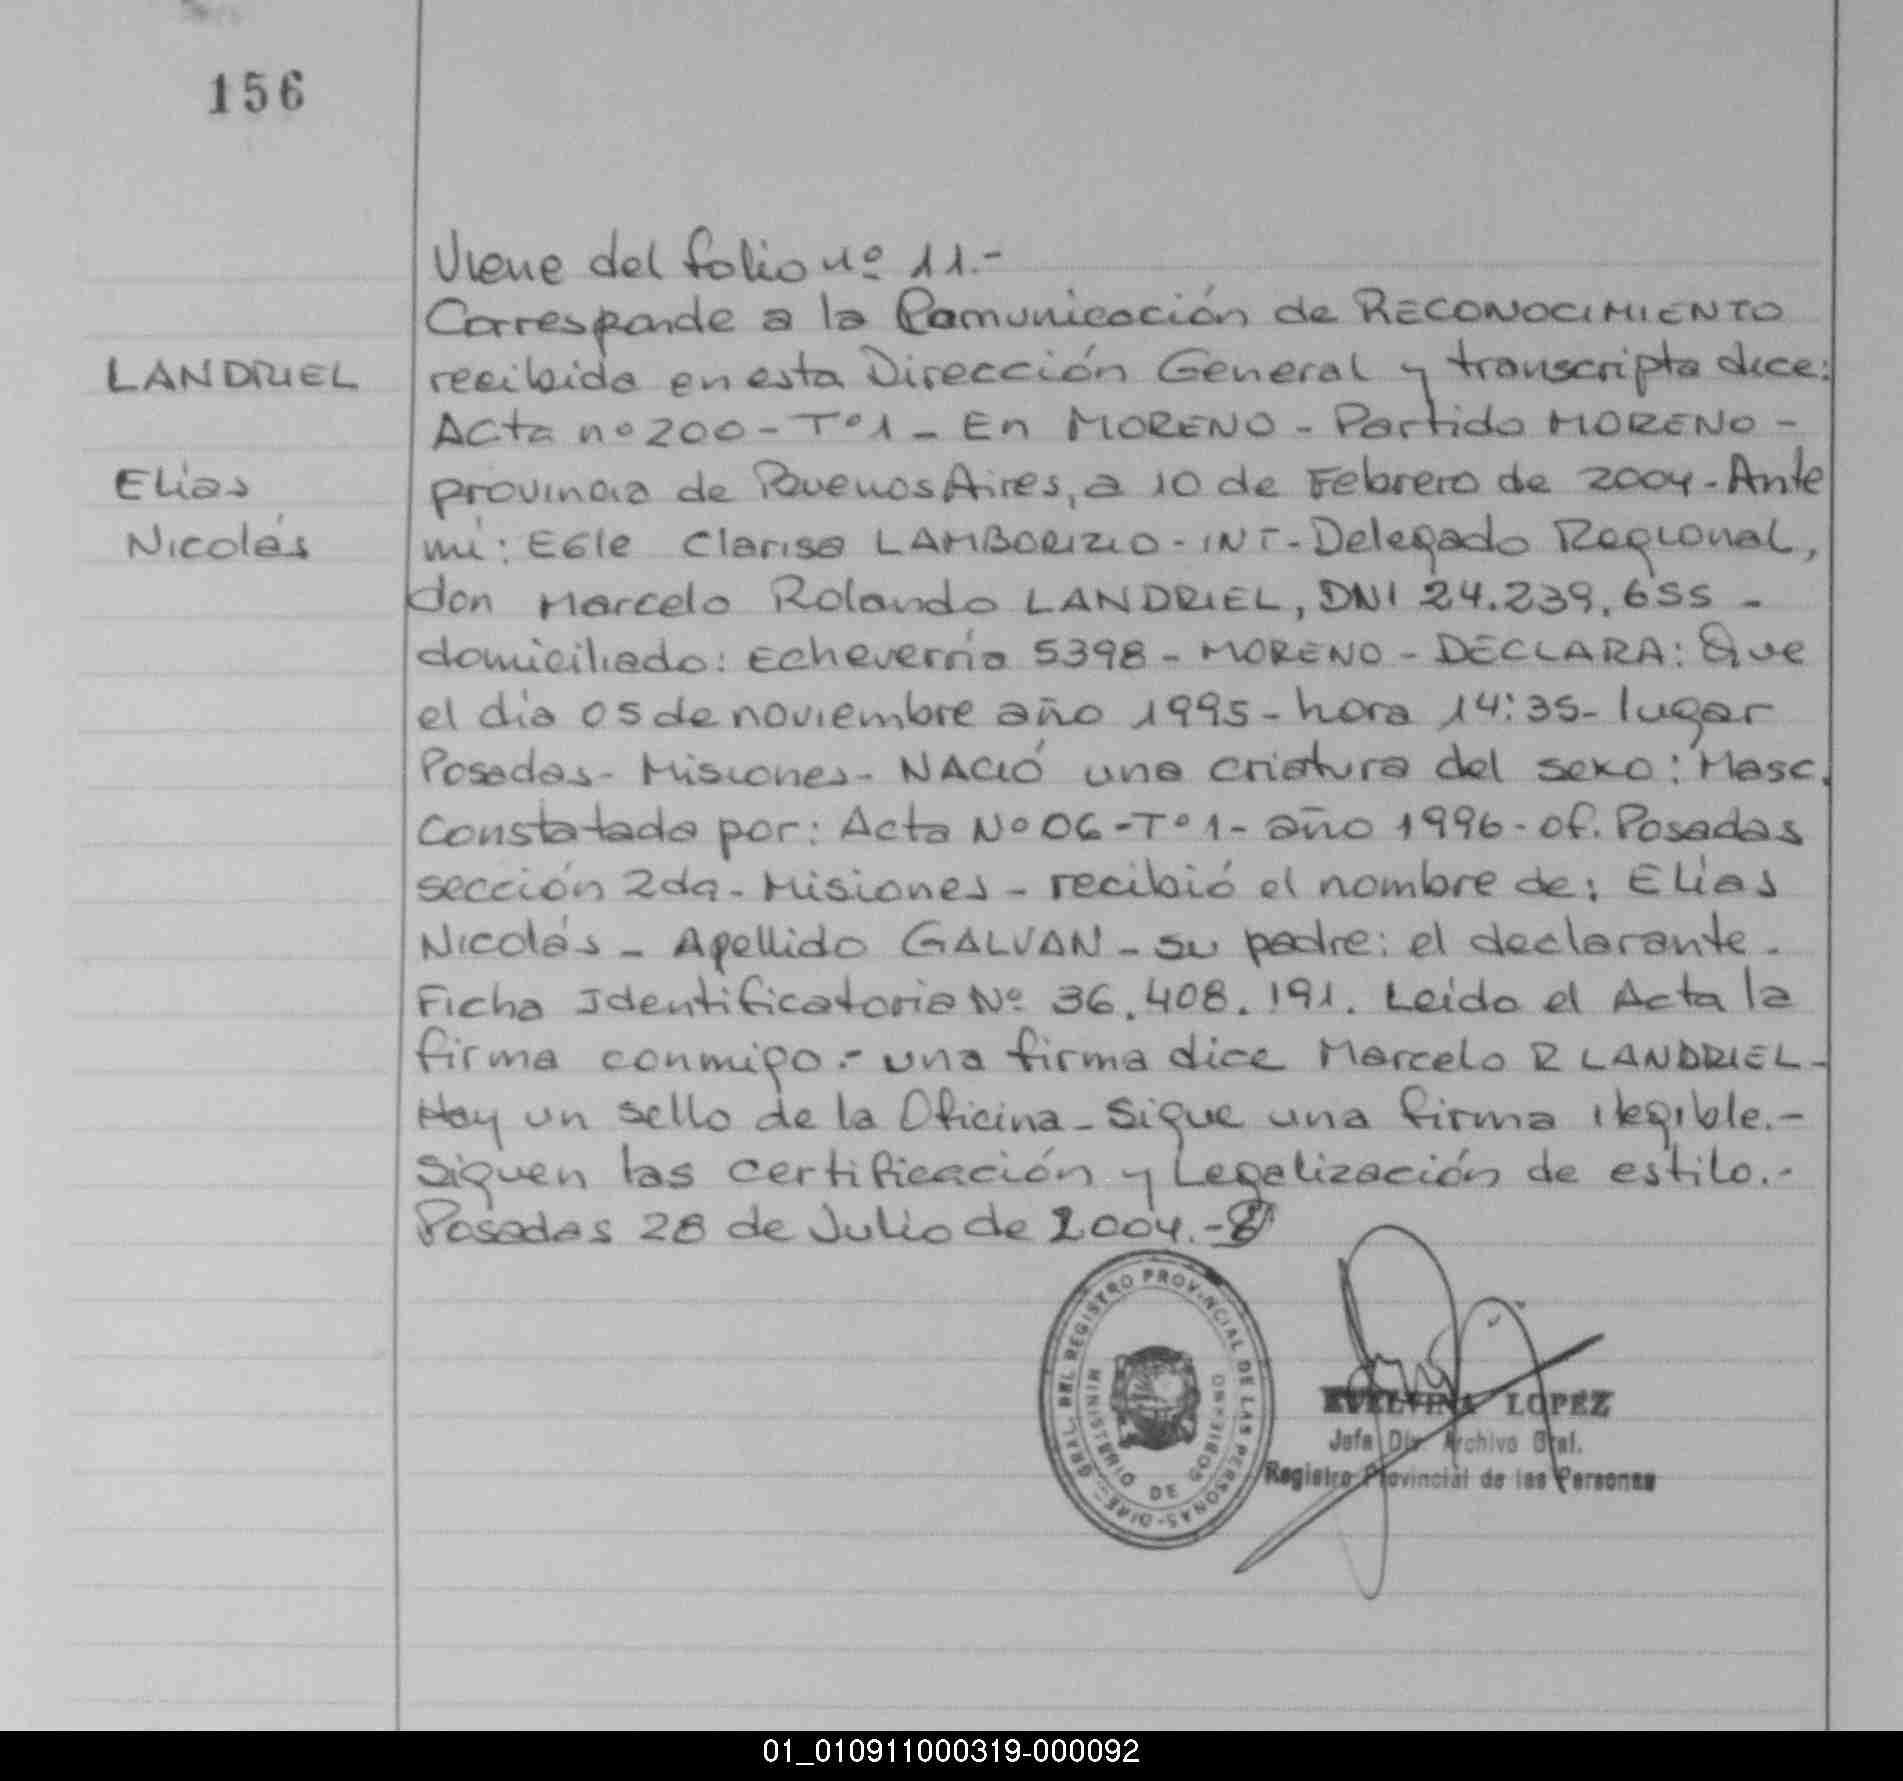 156
Viene del folio nº 11.-
Corresponde a la Comunicación de RECONOCIMIENTO
LANDRIEL
recibida en esta Dirección General y transcripta dice:
Acta nº 200 - Tº 1 - En MORENO - Partido MORENO -
Elías
provincia de Buenos Aires, a 10 de Febrero de 2004 - Ante
Nicolás
mí: Egle Clarisa LAMBORIZIO - INT - Delegado Regional,
don Marcelo Rolando LANDRIEL, DNI 24.239.655 -
domiciliado: Echeverría 5398 - MORENO - DECLARA: Que
el día 05 de noviembre año 1995 - hora 14:35 - lugar
Posadas - Misiones - NACIÓ una criatura del sexo: Masc.
Constatado por: Acta Nº 06 - Tº 1 - año 1996 - of. Posadas
sección 2da - Misiones - recibió el nombre de: Elías
Nicolás - Apellido GALVAN - su padre: el declarante -
Ficha Identificatoria Nº 36.408.191. Leído el Acta la
firma conmigo.- una firma dice Marcelo R LANDRIEL -
Hay un sello de la Oficina - Sigue una firma ilegible.-
Siguen las certificación y Legalización de estilo.-
Posadas 28 de Julio de 2004.-
DIREC. GRAL. DEL REGISTRO PROVINCIAL DE LAS PERSONAS -
MINISTERIO DE GOBIERNO
EVELVINA LOPEZ
Jefa Div. Archivo Gral.
Registro Provincial de las Personas
01_010911000319-000092